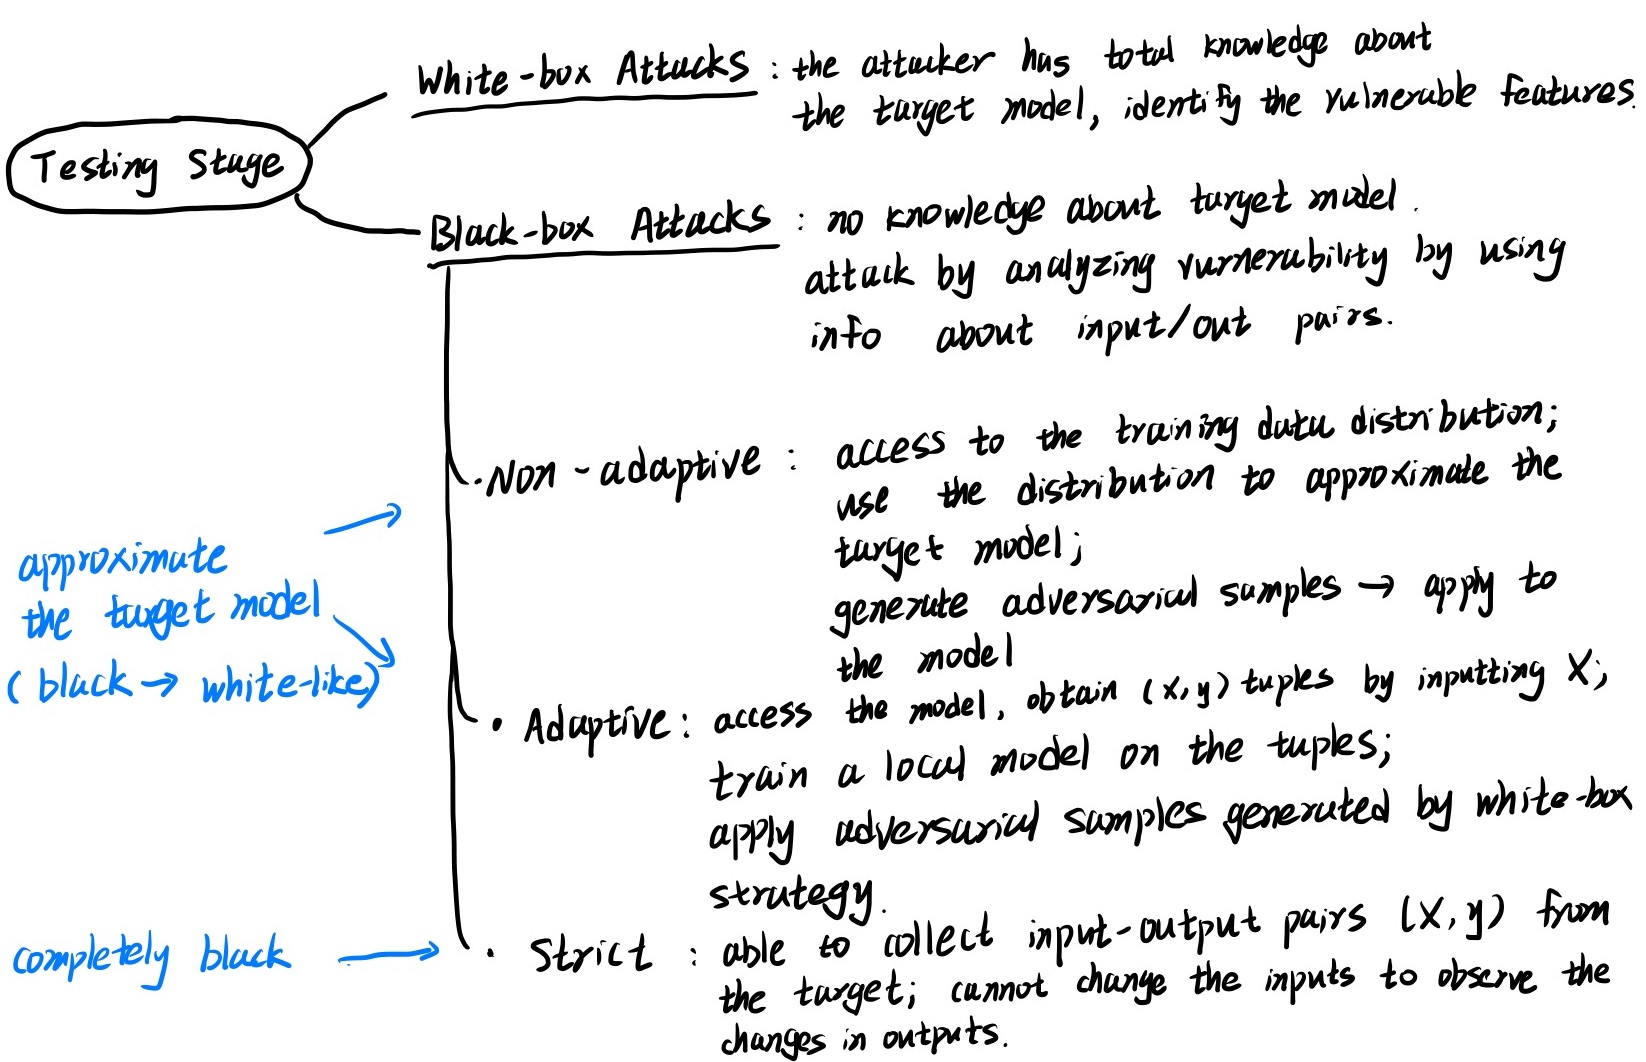 Testing Stage
White-box Attacks : the attacker has total knowledge about
the target model, identify the vulnerable features.
Black-box Attacks : no knowledge about target model.
attack by analyzing vurnerability by using
info about input/out pairs.
· Non-adaptive : access to the training data distribution;
use the distribution to approximate the
target model;
generate adversarial samples → apply to
the model
approximate
the target model
(black → white-like)
· Adaptive : access the model, obtain (x,y) tuples by inputting X;
train a local model on the tuples;
apply adversarial samples generated by white-box
strategy.
completely black
· Strict : able to collect input-output pairs (x,y) from
the target; cannot change the inputs to observe the
changes in outputs.